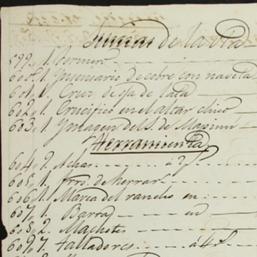 de la otra
599. 1.
600. 1. Incensario de cobre con naveta
601. 1. Cruz de oja de lata
602. 1. Crucifico en el altar chico
603. 1. Ymagen del S. de
Herramienta
604. 2. Achas
605. 1. frro. de herrar
606. 1. Marca del rancho en
607. 1. Barra id
608. 2. Machets
609. 7. Talladores